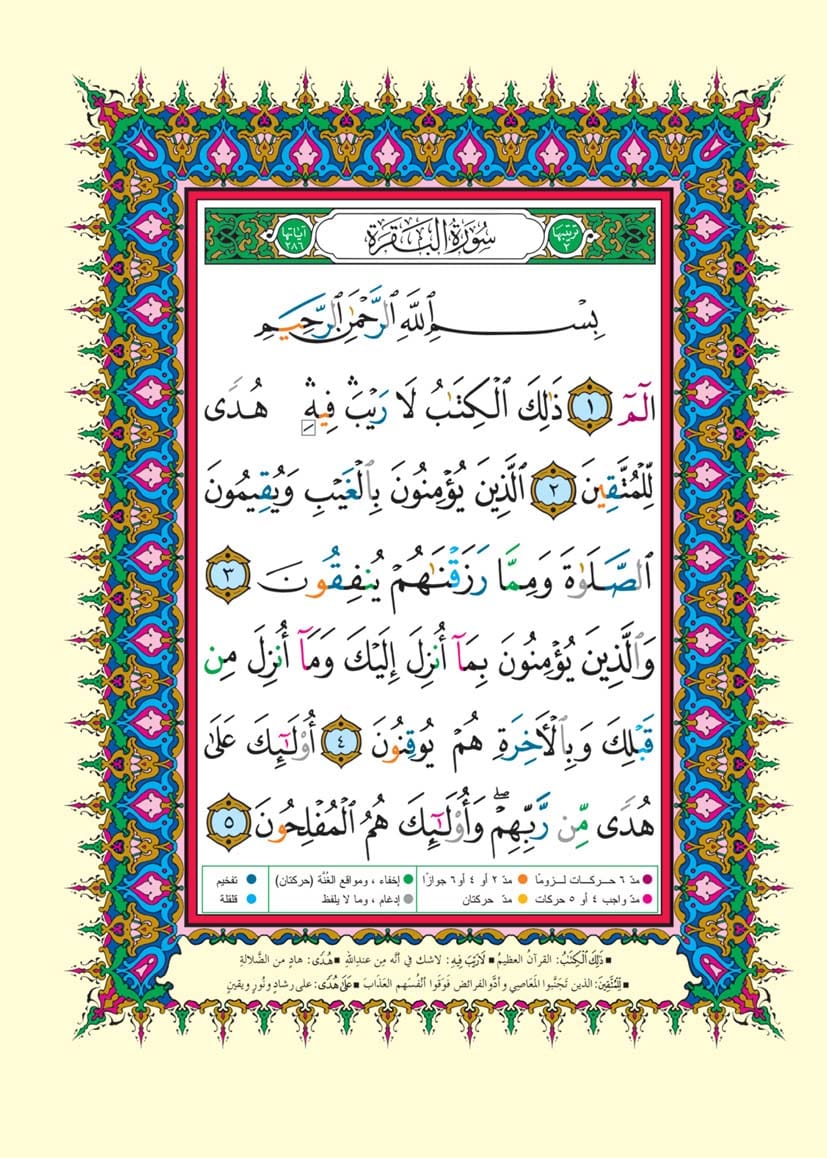 ترتيبها ٢ سُورَةُ البَقَرَةِ آياتها ٢٨٦
بِسْمِ ٱللَّهِ ٱلرَّحْمَٰنِ ٱلرَّحِيمِ
الٓمٓ ١ ذَٰلِكَ ٱلْكِتَٰبُ لَا رَيْبَ ۛ فِيهِ ۛ هُدًى
لِّلْمُتَّقِينَ ٢ ٱلَّذِينَ يُؤْمِنُونَ بِٱلْغَيْبِ وَيُقِيمُونَ
ٱلصَّلَوٰةَ وَمِمَّا رَزَقْنَٰهُمْ يُنفِقُونَ ٣
وَٱلَّذِينَ يُؤْمِنُونَ بِمَآ أُنزِلَ إِلَيْكَ وَمَآ أُنزِلَ مِن
قَبْلِكَ وَبِٱلْأَخِرَةِ هُمْ يُوقِنُونَ ٤ أُوْلَٰٓئِكَ عَلَىٰ
هُدًى مِّن رَّبِّهِمْ ۖ وَأُوْلَٰٓئِكَ هُمُ ٱلْمُفْلِحُونَ ٥
مدّ ٦ حـركـات لـزومًا مدّ ٢ أو ٤ أو ٦ جوازًا إخفاء ، ومواقع الغُنَّة (حركتان) تفخيم
مدّ واجب ٤ أو ٥ حركات مدّ حركتان إدغام ، وما لا يلفظ قلقلة
ذَٰلِكَ ٱلْكِتَٰبُ: القرآن العظيم لَا رَيْبَ فِيهِ: لاشك في أنّه مِن عنداللهِ هُدًى: هادٍ من الضّلالةِ
لِلْمُتَّقِينَ: الذين تَجَنَّبوا المَعَاصي وأدَّوالفرائض فَوَقَوا أنْفُسَهم العَذَابَ عَلَىٰ هُدًى: على رشادٍ ونُورٍ ويقينٍ